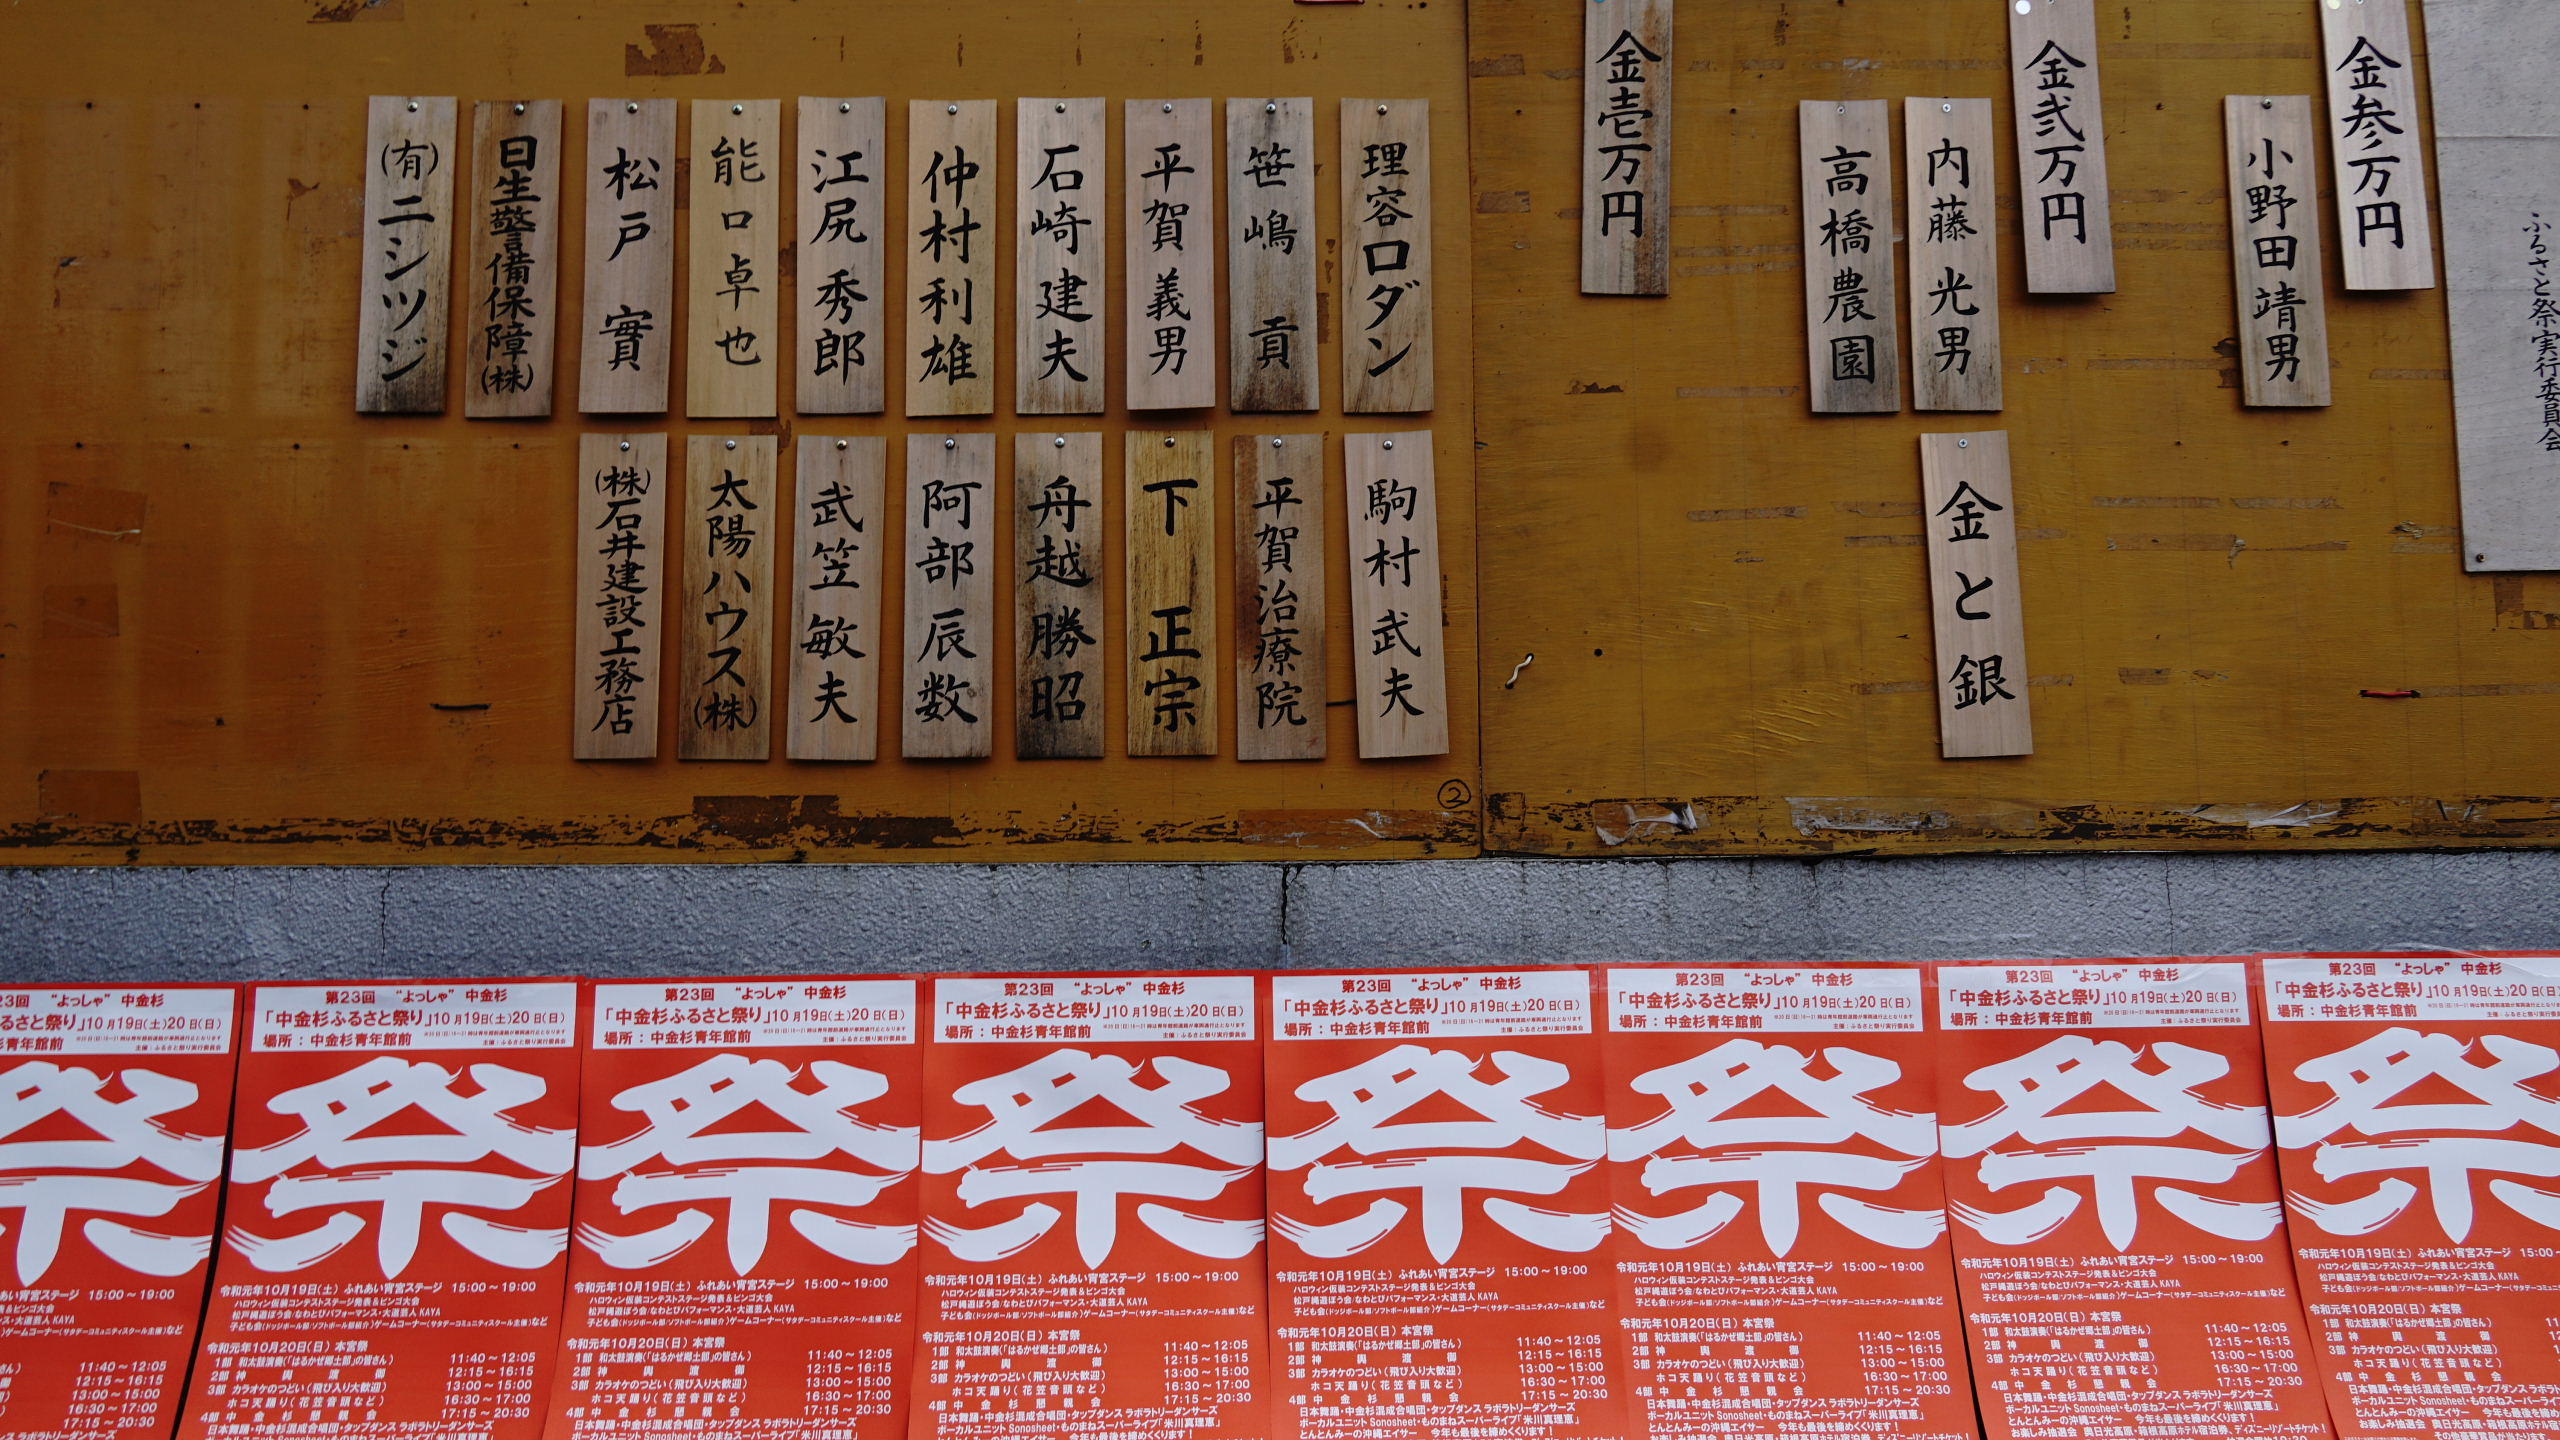 ふるさと祭実行委員会
金参万円
小野田靖男
金弐万円
内藤光男
高橋農園
金と銀
金壱万円
理容ロダン
笹嶋貢
平賀義男
石崎建夫
仲村利雄
江尻秀郎
能口卓也
松戸實
日生警備保障(株)
(有)ニシツジ
駒村武夫
平賀治療院
下正宗
舟越勝昭
阿部辰数
武笠敏夫
太陽ハウス(株)
(株)石井建設工務店
②
第23回 “よっしゃ” 中金杉
「中金杉ふるさと祭り」10月19日(土)20日(日)
場所：中金杉青年館前
主催：ふるさと祭り実行委員会
祭
令和元年10月19日(土) ふれあい宵宮ステージ 15:00～19:00
ハロウィン仮装コンテストステージ発表＆ビンゴ大会
松戸縄遊ぼう会/なわとびパフォーマンス・大道芸人KAYA
子ども会(ドッジボール部/ソフトボール部紹介)ゲームコーナー(サタデーコミュニティスクール主催)など
令和元年10月20日(日) 本宮祭
1部 和太鼓演奏(「はるかぜ郷土部」の皆さん) 11:40～12:05
2部 神輿渡御 12:15～16:15
3部 カラオケのつどい(飛び入り大歓迎) 13:00～15:00
ホコ天踊り(花笠音頭など) 16:30～17:00
4部 中金杉懇親会 17:15～20:30
日本舞踊・中金杉混成合唱団・タップダンス ラボラトリーダンサーズ
ボーカルユニット Sonosheet・ものまねスーパーライブ「米川真理恵」
とんとんみーの沖縄エイサー 今年も最後を締めくくります！